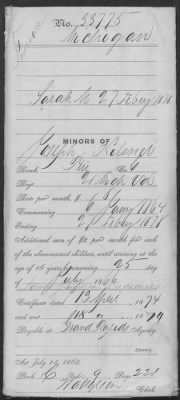 No. 33775
Michigan
Sarah M 27 Feby 1878
MINORS OF
Joseph
Rank, Co.
Regt. 21 Mich Vols
Rate per month, $
Commencing 6 Jany 1864
Ending 27 Feby 1878
Additional sum of $2 per month for each
of the abovenamed children until arriving at the
age of 16 years, commencing 25 day
of July 1866
Certificate dated 13 April 1874
and sent 18 " 1874
Payable at Grand Rapids Agency
Act July 14, 1862
Book Page 221
Clerk